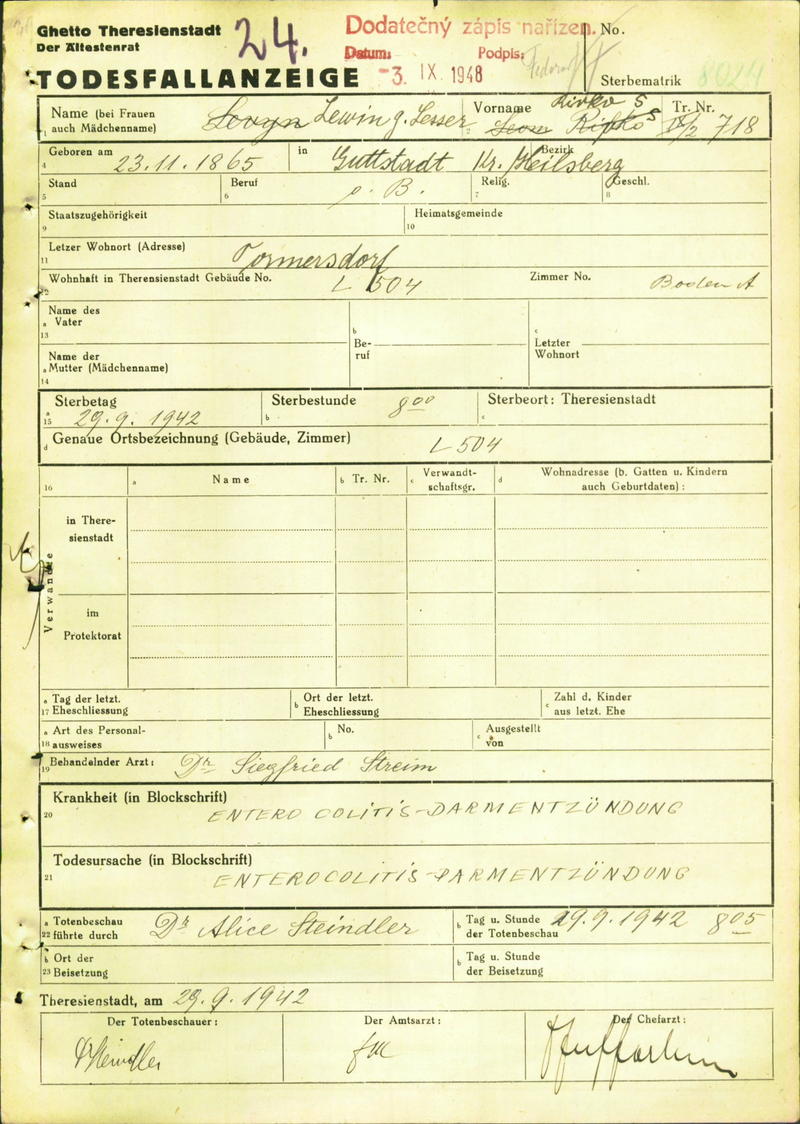 Ghetto Theresienstadt
Der Ältestenrat
24.
Dodatečný zápis nařízen.
Datum: -3. IX 1948 Podpis:
No.
Sterbematrik
TODESFALLANZEIGE
Name (bei Frauen auch Mädchenname) Lewin g. Lesser
Vorname
Tr. Nr. 718
1
Geboren am 23.11.1865 in Guttstadt Kr. Heilsberg Bezirk
4
Stand Beruf o. B. Relig. Geschl.
5 6 7 8
Staatszugehörigkeit Heimatsgemeinde
9 10
Letzer Wohnort (Adresse) Tormersdorf
11
Wohnhaft in Theresienstadt Gebäude No. L 504 Zimmer No. Boden A
Name des
a Vater
13
b Beruf
c Letzter Wohnort
Name der
a Mutter (Mädchenname)
14
Sterbetag 29.9.1942 Sterbestunde 8 00 Sterbeort: Theresienstadt
a 15 b c
d Genaue Ortsbezeichnung (Gebäude, Zimmer) L 504
16 a Name b Tr. Nr. c Verwandt-schaftsgr. d Wohnadresse (b. Gatten u. Kindern auch Geburtdaten):
Verwandte
in There-
sienstadt
im
Protektorat
a Tag der letzt. b Ort der letzt. c Zahl d. Kinder
17 Eheschliessung Eheschliessung aus letzt. Ehe
a Art des Personal- b No. c Ausgestellt
18 ausweises von
19 Behandelnder Arzt: Dr Siegfried Streim
Krankheit (in Blockschrift) ENTERO COLITIS-DARMENTZÜNDUNG
20
Todesursache (in Blockschrift) ENTEROCOLITIS-DARMENTZÜNDUNG
21
a Totenbeschau Dr Alice Steindler b Tag u. Stunde 29.9.1942 8 05
22 führte durch der Totenbeschau
b Ort der b Tag u. Stunde
23 Beisetzung der Beisetzung
Theresienstadt, am 29.9.1942
Der Totenbeschauer: Der Amtsarzt: Der Chefarzt:
Dr Steindler